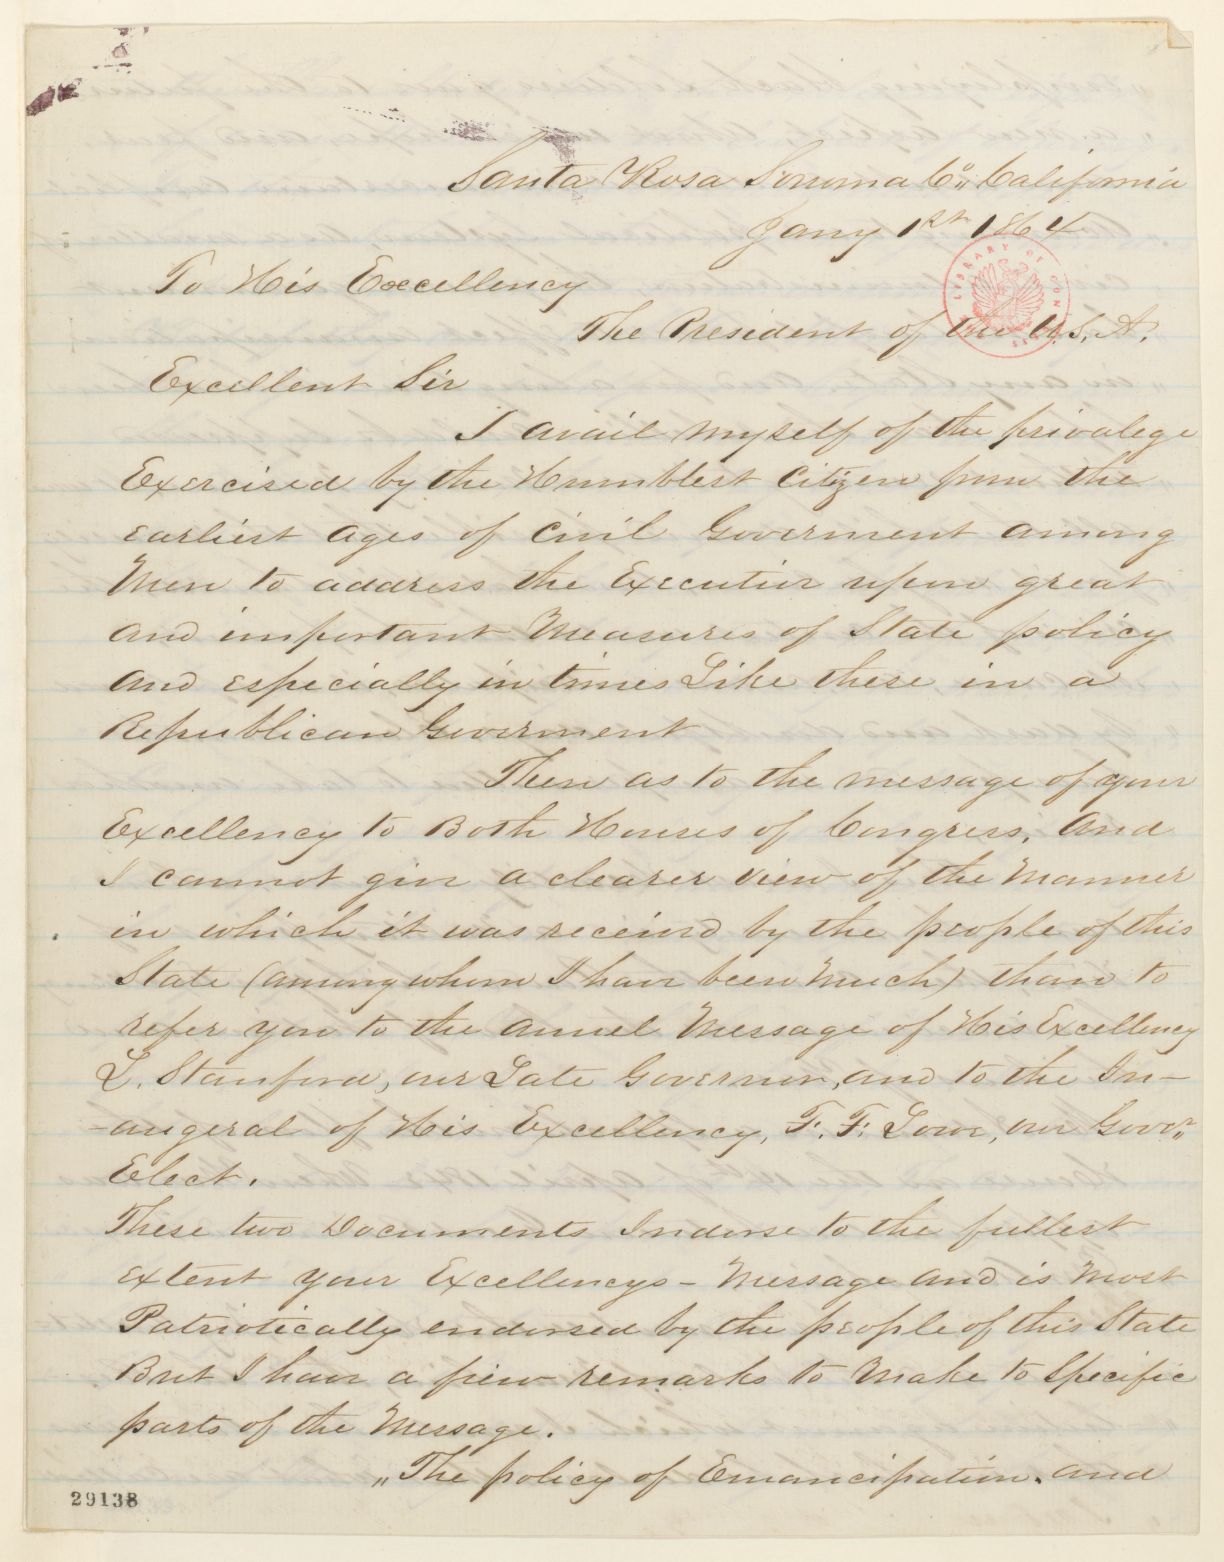 Santa Rosa Sonoma Co,, California
Jany 1st 1864
LIBRARY OF CONGRESS
To His Excellency
The President of the U.S.A.
Excellent Sir
I avail myself of the privalege
Exercised by the Humblest Citizen from the
earliest ages of Civil Goverment among
Men to address the Executive upon great
and important Measures of State policy
and especially in times Like these in a
Republican Goverment
Then as to the message of your
Excellency to Both Houses of Congress, and
I cannot give a clearer view of the Manner
in which it was received by the people of this
State (among whom I have been Much) than to
refer you to the annul Message of His Excellency
L. Stanford, our Late Governor, and to the In-
-augeral of His Excellency, F. F. Lowe, our Govr,,
Elect.
These two Documents Indorse to the fullest
extent your Excellencys - Message and is Most
Patriotically endorsed by the people of this State
But I have a fiew remarks to Make to Specific
parts of the Message.
„The policy of Emancipation. and
29138